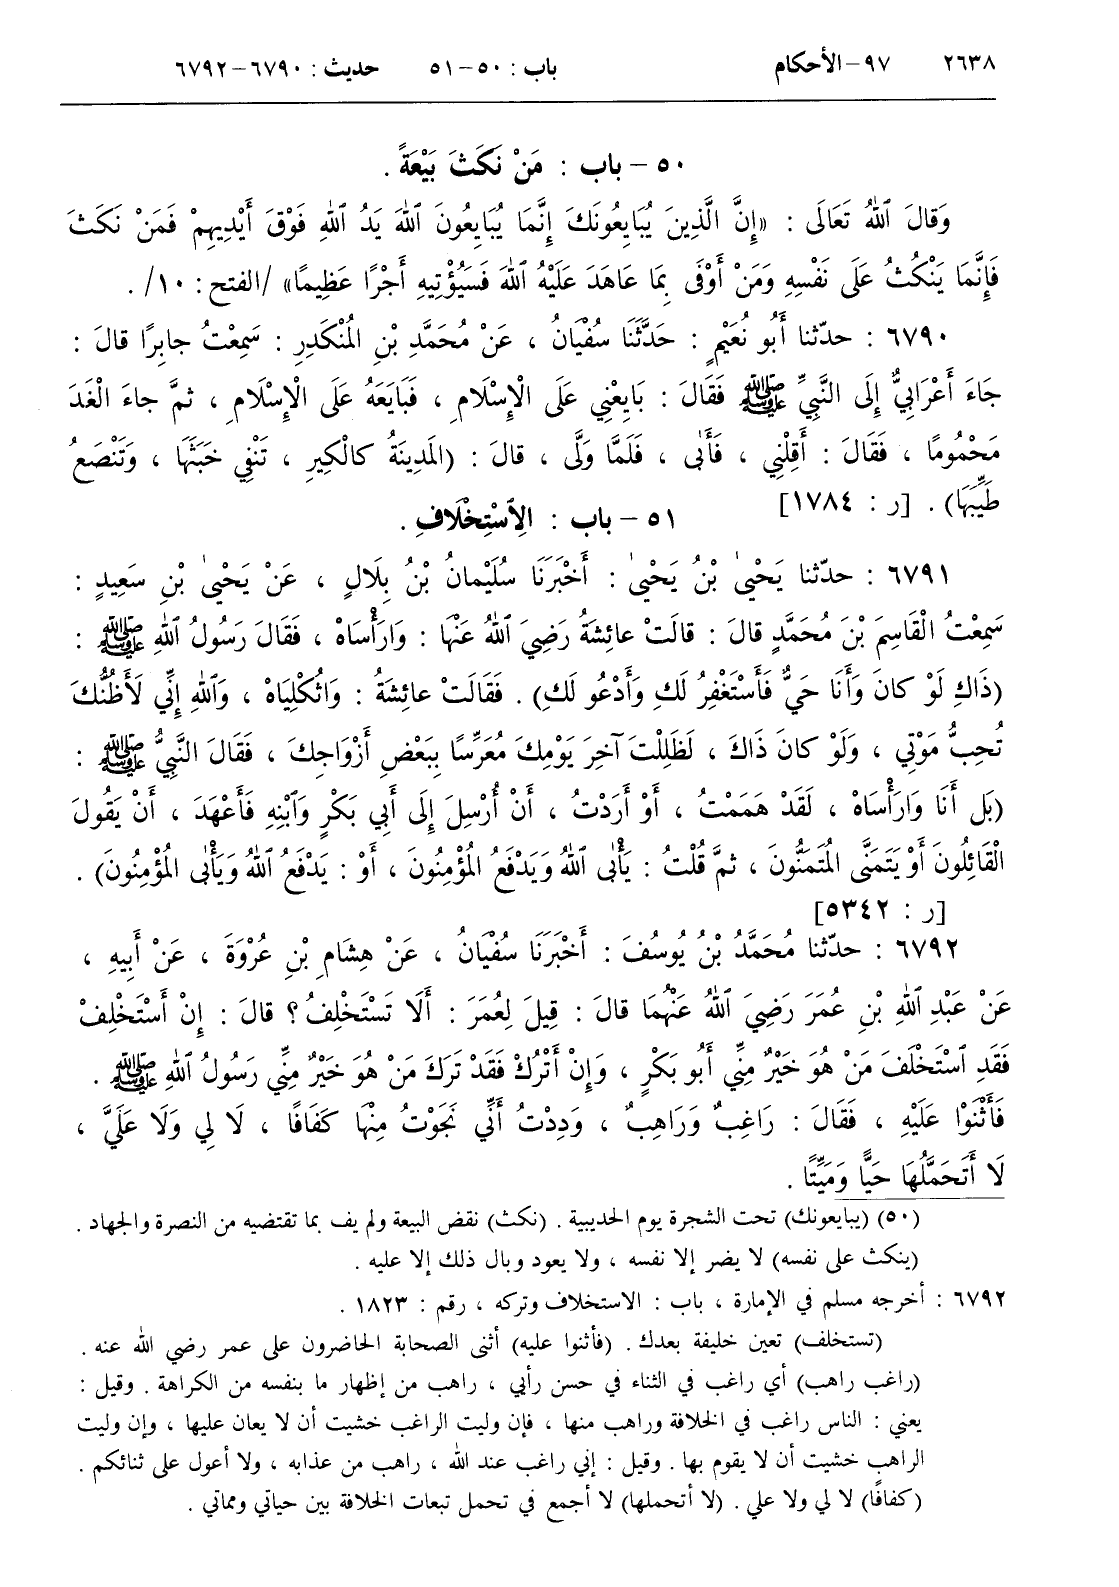 ٢٦٣٨ ٩٧ – الأحكام باب : ٥٠ – ٥١ حديث : ٦٧٩٠ – ٦٧٩٢
٥٠ – باب : مَنْ نَكَثَ بَيْعَةً .
وَقالَ ٱللهُ تَعَالَى : «إِنَّ الَّذِينَ يُبَايِعُونَكَ إِنَّمَا يُبَايِعُونَ ٱللهَ يَدُ ٱللهِ فَوْقَ أَيْدِيهِمْ فَمَنْ نَكَثَ
فَإِنَّمَا يَنْكُثُ عَلَى نَفْسِهِ وَمَنْ أَوْفَى بِمَا عَاهَدَ عَلَيْهُ ٱللهَ فَسَيُؤْتِيهِ أَجْرًا عَظِيمًا» /الفتح : ١٠/ .
٦٧٩٠ : حدّثنا أَبُو نُعَيْمٍ : حَدَّثَنَا سُفْيَانُ ، عَنْ مُحَمَّدِ بْنِ المُنْكَدِرِ : سَمِعْتُ جابِرًا قالَ :
جَاءَ أَعْرَابِيٌّ إِلَى النَّبِيِّ ﷺ فَقَالَ : بَايِعْنِي عَلَى الْإِسْلَامِ ، فَبَايَعَهُ عَلَى الْإِسْلَامِ ، ثمَّ جاءَ الْغَدَ
مَحْمُومًا ، فَقَالَ : أَقِلْنِي ، فَأَبَى ، فَلَمَّا وَلَّى ، قالَ : (المَدِينَةُ كالْكِيرِ ، تَنْفِي خَبَثَهَا ، وَتَنْصَعُ
طَيِّبَهَا) . [ر : ١٧٨٤]
٥١ – باب : الِٱسْتِخْلَافِ .
٦٧٩١ : حدّثنا يَحْيىٰ بْنُ يَحْيىٰ : أَخْبَرَنَا سُلَيْمانُ بْنُ بِلَالٍ ، عَنْ يَحْيىٰ بْنِ سَعِيدٍ :
سَمِعْتُ الْقَاسِمَ بْنَ مُحَمَّدٍ قالَ : قالَتْ عائِشَةُ رَضِيَ ٱللهُ عَنْهَا : وَارَأْسَاهْ ، فَقَالَ رَسُولُ ٱللهِ ﷺ :
(ذَاكِ لَوْ كانَ وَأَنَا حَيٌّ فَأَسْتَغْفِرُ لَكِ وَأَدْعُو لَكِ) . فَقَالَتْ عائِشَةُ : وَاثُكْلِيَاهْ ، وَٱللهِ إِنِّي لَأَظُنُّكَ
تُحِبُّ مَوْتِي ، وَلَوْ كانَ ذَاكَ ، لَظَلِلْتَ آخِرَ يَوْمِكَ مُعَرِّسًا بِبَعْضِ أَزْوَاجِكَ ، فَقَالَ النَّبِيُّ ﷺ :
(بَل أَنَا وَارَأْسَاهْ ، لَقَدْ هَمَمْتُ ، أَوْ أَرَدْتُ ، أَنْ أُرْسِلَ إِلَى أَبِي بَكْرٍ وَٱبْنِهِ فَأَعْهَدَ ، أَنْ يَقُولَ
الْقَائِلُونَ أَوْ يَتَمَنَّى المُتَمَنُّونَ ، ثمَّ قُلْتُ : يَأْبَى ٱللهُ وَيَدْفَعُ المُؤْمِنُونَ ، أَوْ : يَدْفَعُ ٱللهُ وَيَأْبَى المُؤْمِنُونَ) .
[ر : ٥٣٤٢]
٦٧٩٢ : حدّثنا مُحَمَّدُ بْنُ يُوسُفَ : أَخْبَرَنَا سُفْيَانُ ، عَنْ هِشَامِ بْنِ عُرْوَةَ ، عَنْ أَبِيهِ ،
عَنْ عَبْدِ ٱللهِ بْنِ عُمَرَ رَضِيَ ٱللهُ عَنْهُمَا قالَ : قِيلَ لِعُمَرَ : أَلَا تَسْتَخْلِفُ ؟ قالَ : إِنْ أَسْتَخْلِفْ
فَقَدِ ٱسْتَخْلَفَ مَنْ هُوَ خَيْرٌ مِنِّي أَبُو بَكْرٍ ، وَإِنْ أَتْرُكْ فَقَدْ تَرَكَ مَنْ هُوَ خَيْرٌ مِنِّي رَسُولُ ٱللهِ ﷺ .
فَأَثْنَوْا عَلَيْهِ ، فَقَالَ : رَاغِبٌ وَرَاهِبٌ ، وَدِدْتُ أَنِّي نَجَوْتُ مِنْهَا كَفَافًا ، لَا لِي وَلَا عَلَيَّ ،
لَا أَتَحَمَّلُهَا حَيًّا وَمَيِّتًا .
(٥٠) (يبايعونك) تحت الشجرة يوم الحديبية . (نكث) نقض البيعة ولم يف بما تقتضيه من النصرة والجهاد .
(ينكث على نفسه) لا يضر إلا نفسه ، ولا يعود وبال ذلك إلا عليه .
٦٧٩٢ : أخرجه مسلم في الإمارة ، باب : الاستخلاف وتركه ، رقم : ١٨٢٣ .
(تستخلف) تعين خليفة بعدك . (فأثنوا عليه) أثنى الصحابة الحاضرون على عمر رضي الله عنه .
(راغب راهب) أي راغب في الثناء في حسن رأيي ، راهب من إظهار ما بنفسه من الكراهة . وقيل :
يعني : الناس راغب في الخلافة وراهب منها ، فإن وليت الراغب خشيت أن لا يعان عليها ، وإن وليت
الراهب خشيت أن لا يقوم بها . وقيل : إني راغب عند الله ، راهب من عذابه ، ولا أعول على ثنائكم .
(كفافًا) لا لي ولا علي . (لا أتحملها) لا أجمع في تحمل تبعات الخلافة بين حياتي ومماتي .